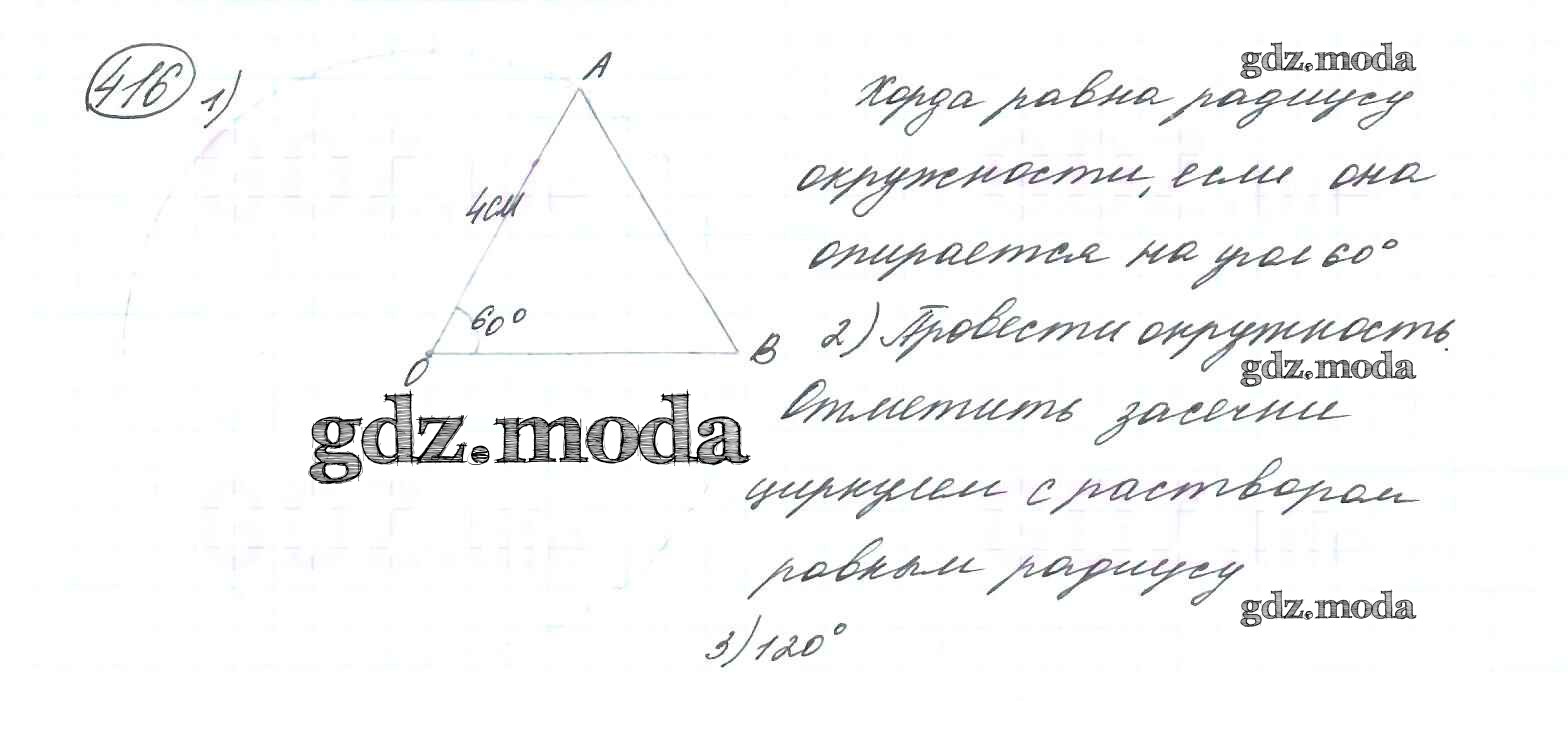 416 1)
A
4см
60°
O
B
Хорда равна радиусу
окружности, если она
опирается на угол 60°
2) Провести окружность.
Отметить засечки
циркулем с раствором
равным радиусу
3) 120°
gdz.moda
gdz.moda
gdz.moda
gdz.moda